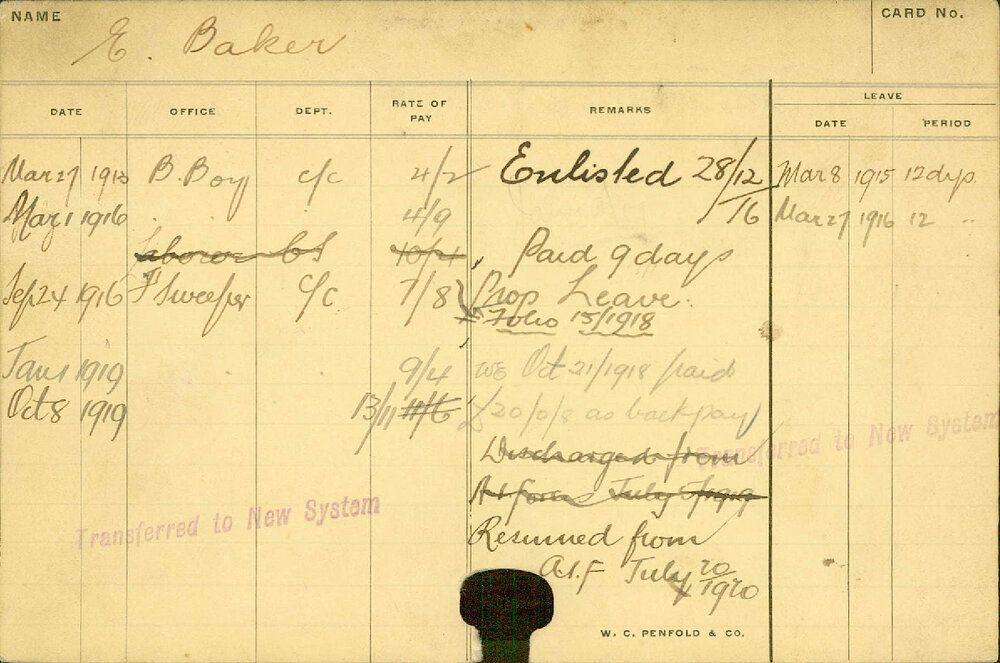 NAME
CARD No.
E. Baker
DATE OFFICE DEPT. RATE OF PAY REMARKS LEAVE
DATE PERIOD
Mar 27 1913 B. Boy C/C 4/2 Enlisted 28/12/16 Mar 8 1915 12 dys.
Mar 1 1916 4/9 Mar 27 1916 12 "
Laborer 10/4 Paid 9 days
Sep 24 1916 Sweeper C/C 7/8 Prop Leave.
Folio 15/1918
Jan 1 1919 9/4 WE Oct 21/1918 paid
Oct 8 1919 13/11 11/6 £20/0/8 as back pay
Discharged from
Transferred to New System
A.I. forces July 1919
Transferred to New System
Resumed from
A.I.F July 20/1920
W. C. PENFOLD & CO.